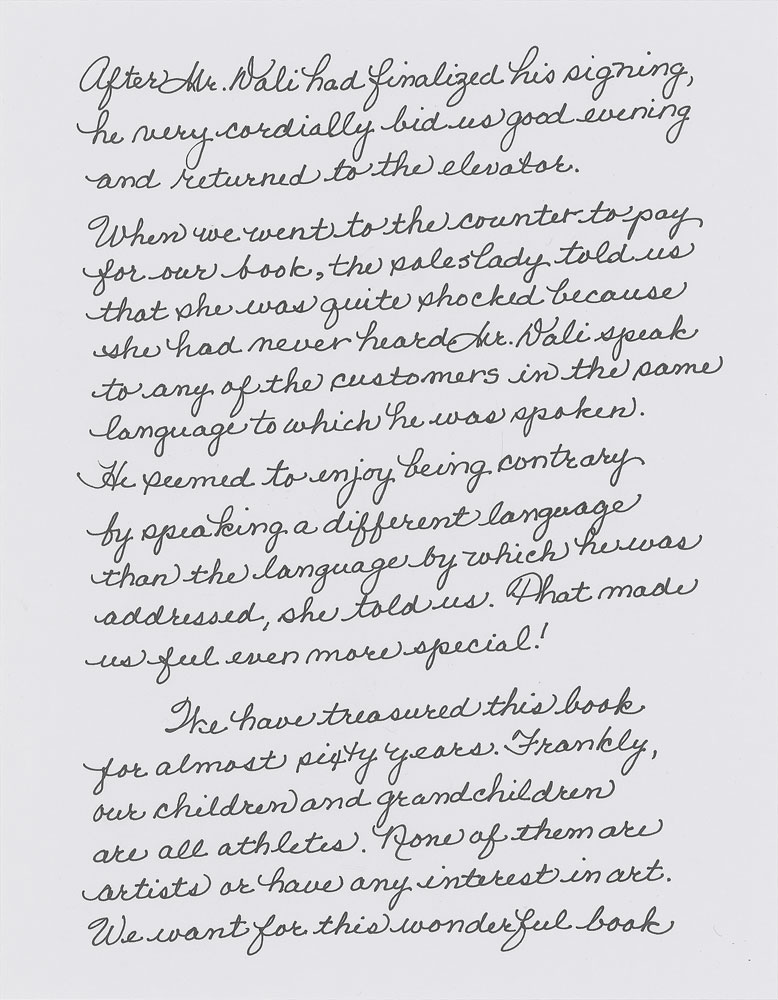 After Mr. Dali had finalized his signing,
he very cordially bid us good evening
and returned to the elevator.
When we went to the counter to pay
for our book, the saleslady told us
that she was quite shocked because
she had never heard Mr. Dali speak
to any of the customers in the same
language to which he was spoken.
He seemed to enjoy being contrary
by speaking a different language
than the language by which he was
addressed, she told us. That made
us feel even more special!
We have treasured this book
for almost sixty years. Frankly,
our children and grandchildren
are all athletes. None of them are
artists or have any interest in art.
We want for this wonderful book